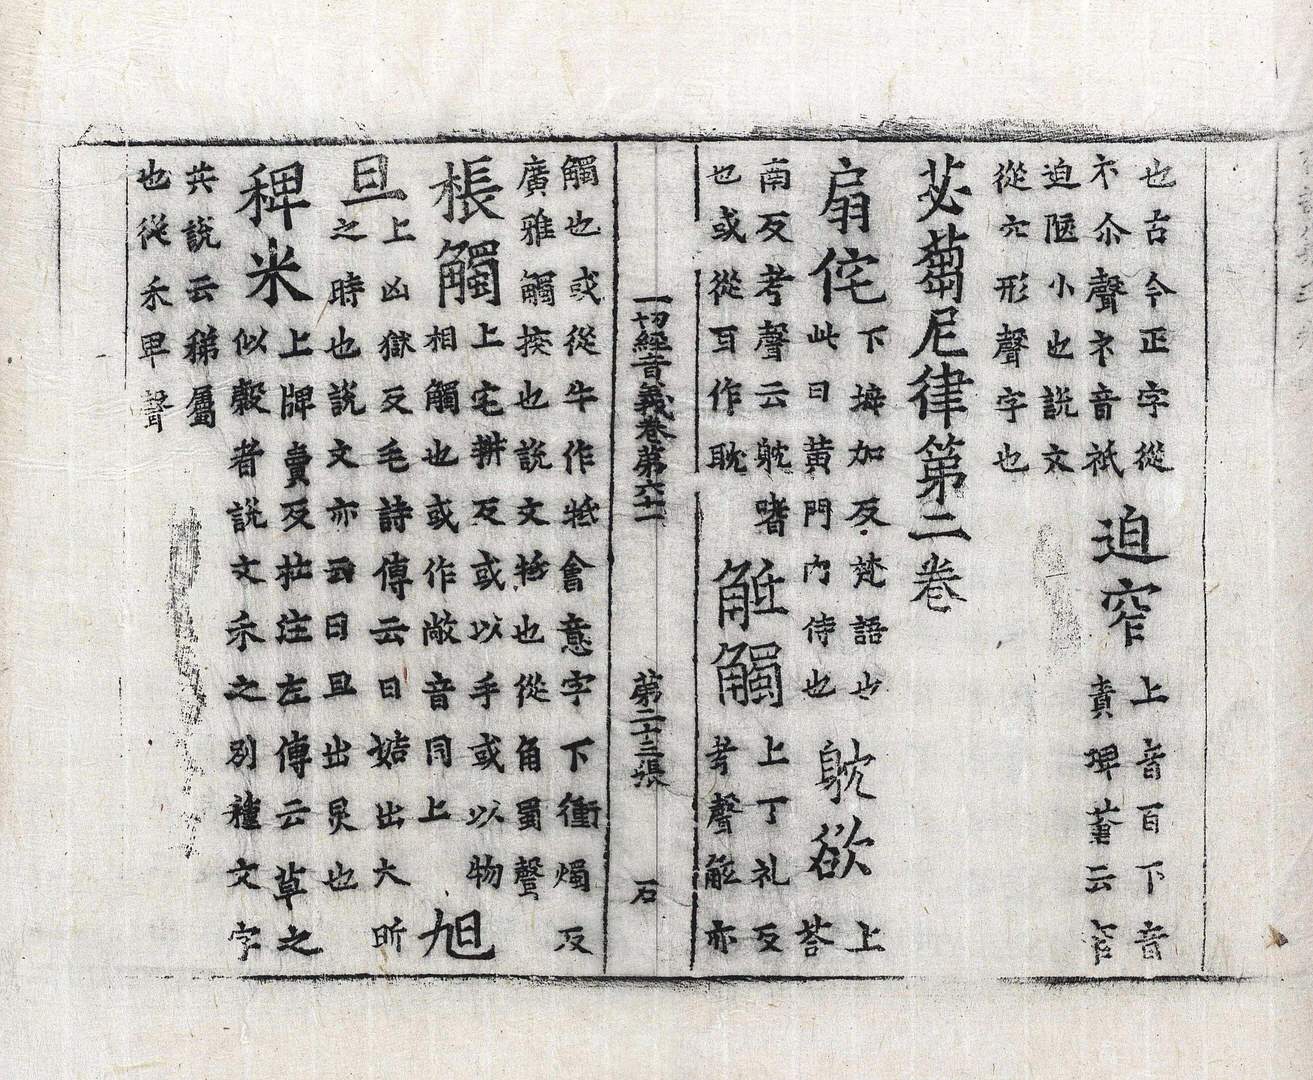 也古今正字從
礻尒聲礻音祇
迫窄
上音百下音
責埤蒼云窄
迫陋小也説文
從穴形聲字也
苾蒭尼律第二卷
扇侘
下加反梵語也
此曰黃門內侍也
躭欲
上
荅
南反考聲云躭嗜
也或從耳作耽
觝觸
上丁礼反
考聲觝亦
一切經音義卷第六十一 第二十三張 石
觸也或從牛作牴會意字下衝燭反
廣雅觸揬也説文牴也從角蜀聲
棖觸
上宅耕反或以手或以物
相觸也或作敞音同上
旭
旦
上凶獄反毛詩傳云日始出大昕
之時也説文亦云日旦出皃也
稗米
上牌賣反杜注左傳云草之
似穀者説文禾之別種文字
共説云稊屬
也從禾卑聲